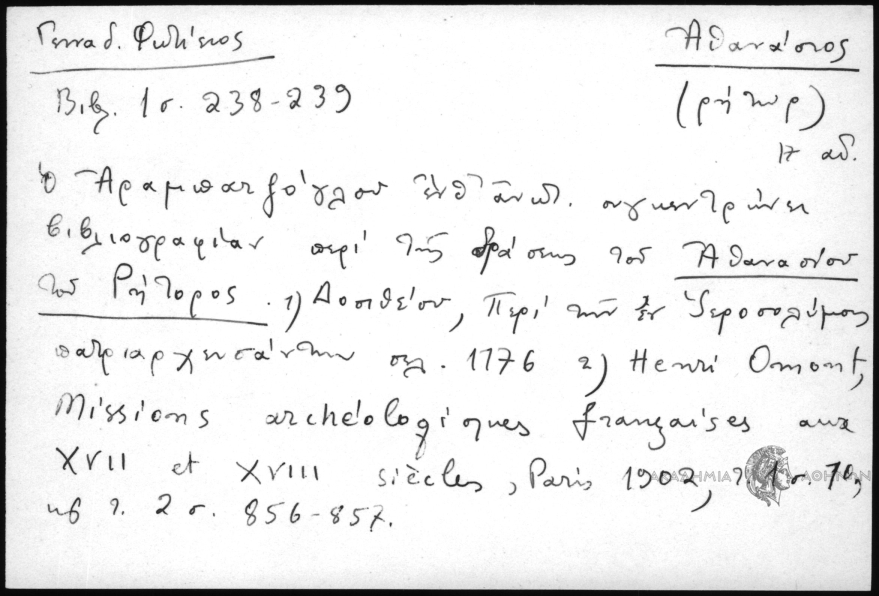 Γενναδ. Φωτίειος
Ἀθανάσιος
Βιβλ. 1 σ. 238-239
(ρήτωρ)
17 αἰ.
Ὁ Ἀραμπατζόγλου ἔνθ' ἀνωτ. συγκεντρώνει
βιβλιογραφίαν περί τῆς δράσεως τοῦ Ἀθανασίου
τοῦ Ρήτορος. 1) Δοσιθέου, Περί τῶν ἐν Ἱεροσολύμοις
πατριαρχευσάντων σελ. 1176 2) Henri Omont,
Missions archéologiques françaises aux
XVII et XVIII siècles, Paris 1902, τ. 1 σ. 1 
κβ τ. 2 σ. 856-857.
ΑΚΑΔΗΜΙΑ ΑΘΗΝΩΝ